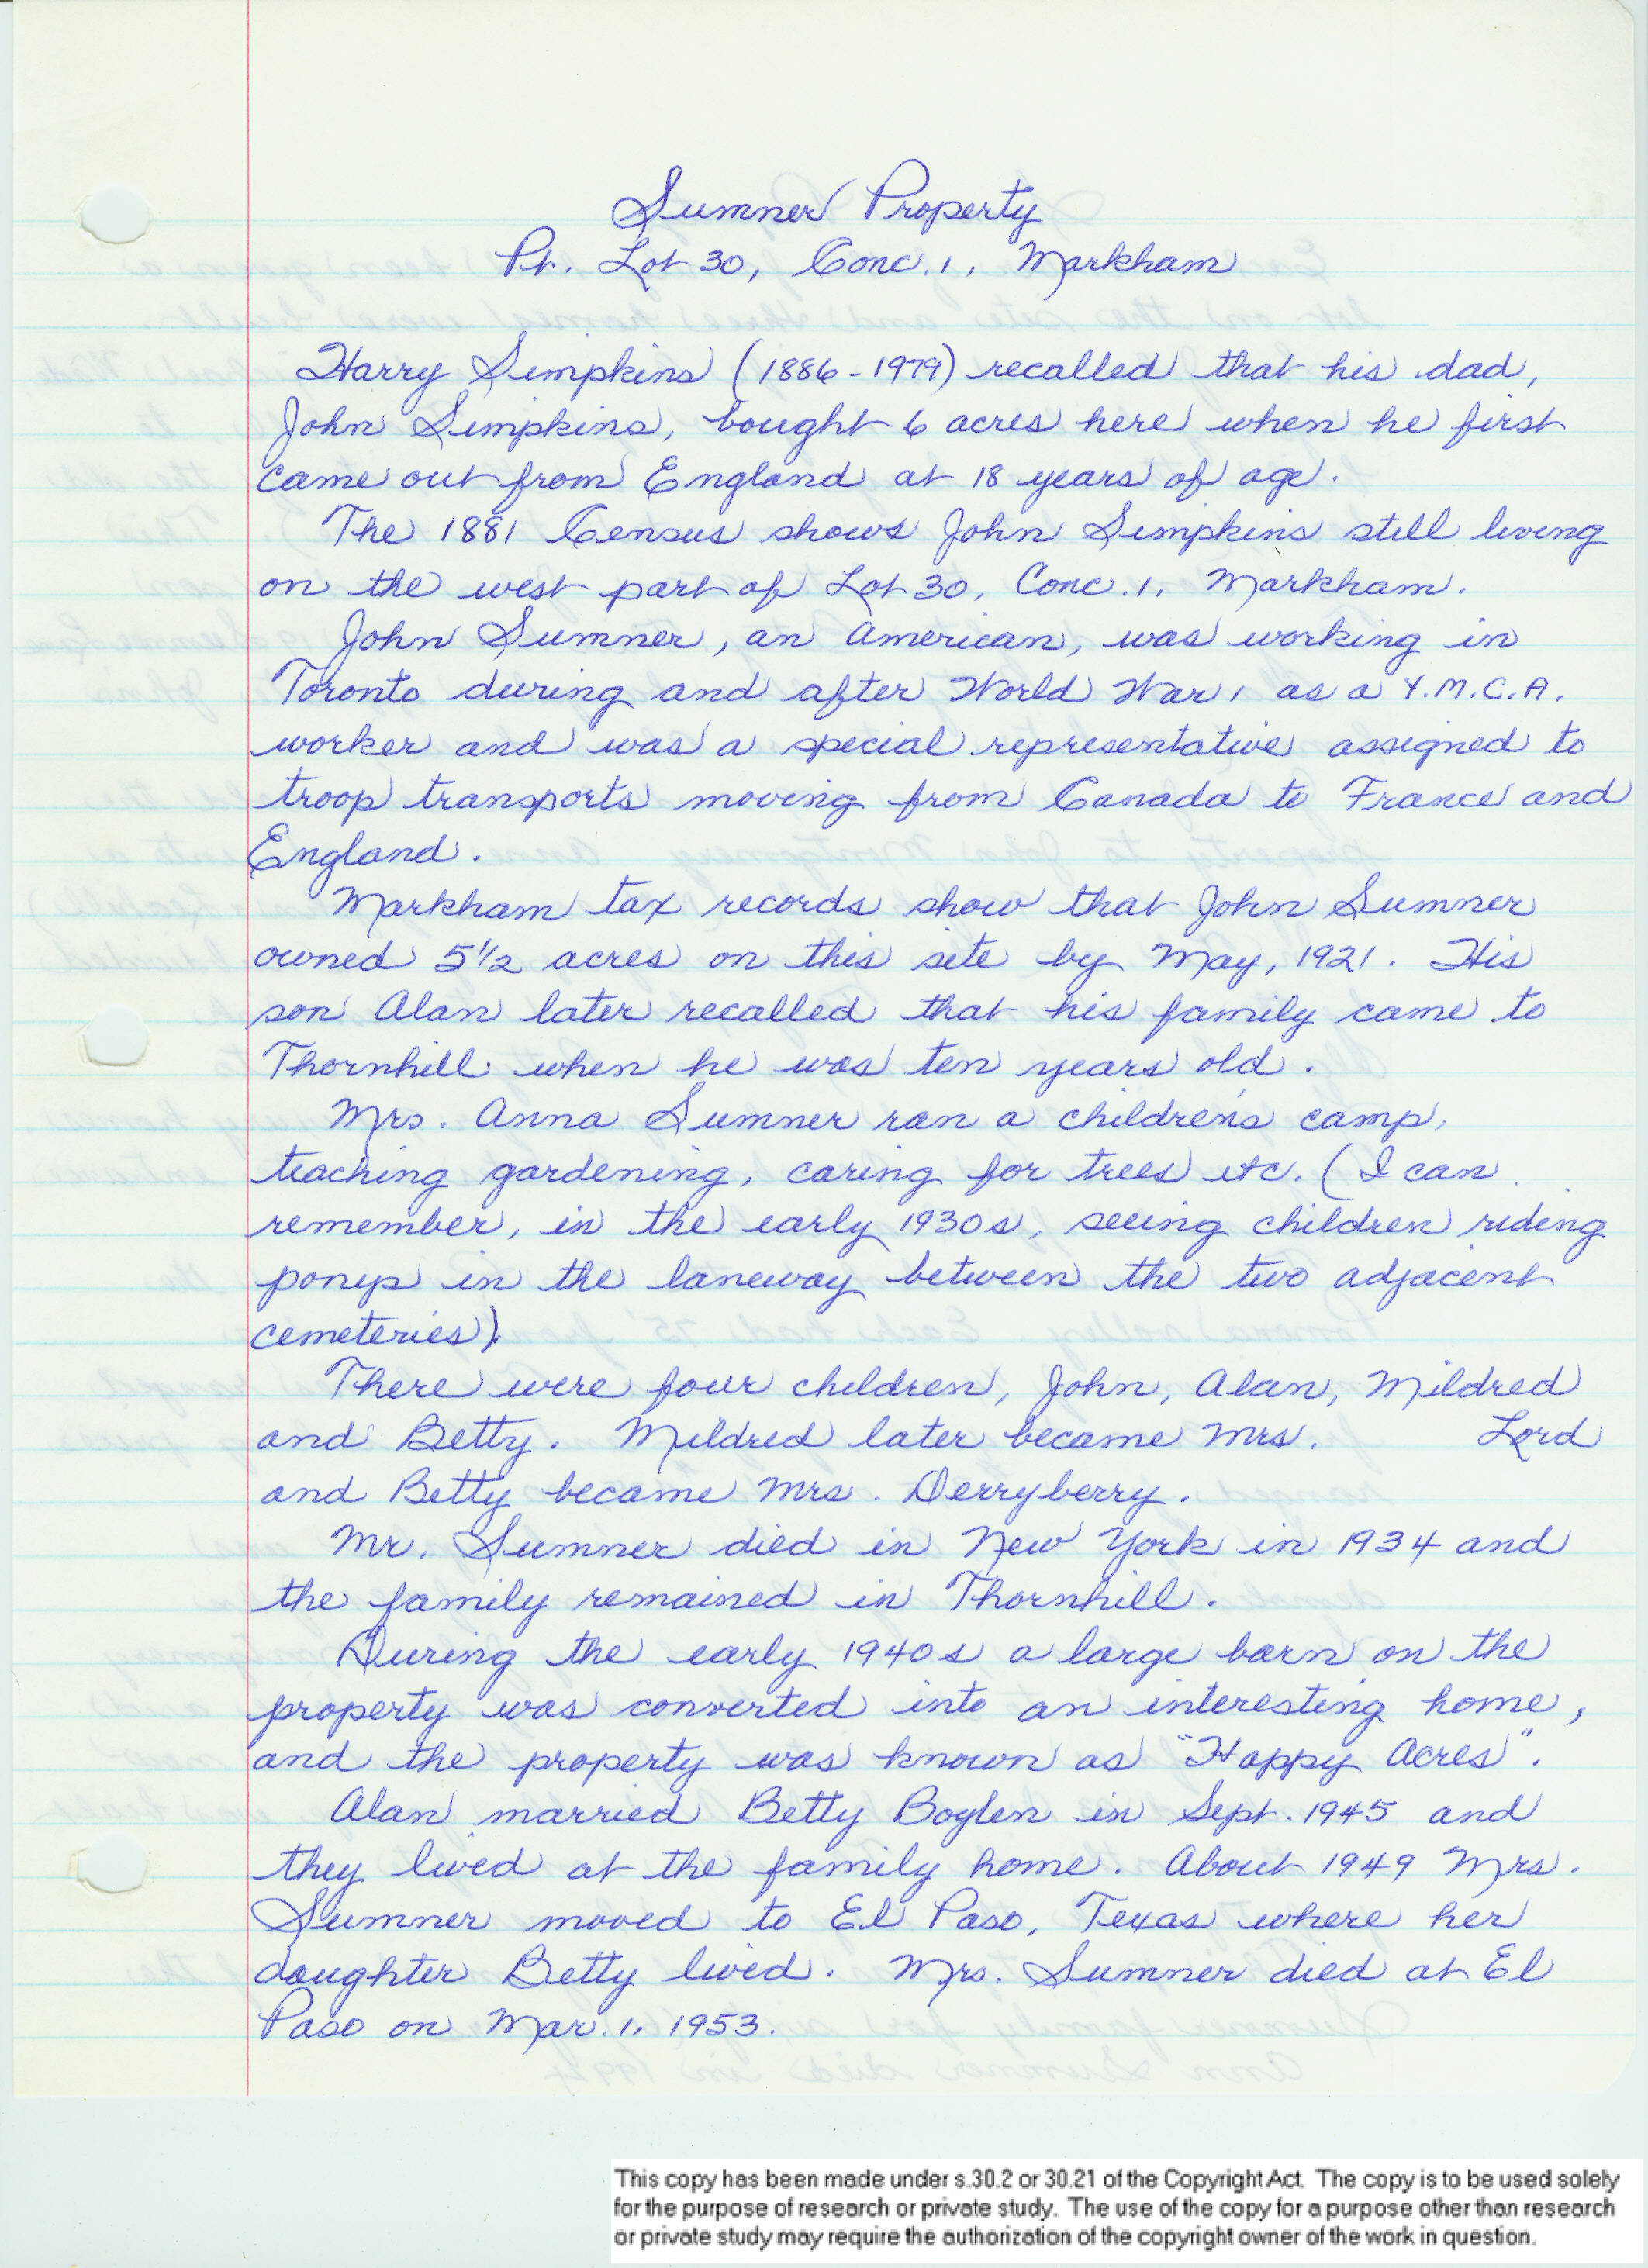 Sumner Property
Pt. Lot 30, Conc. 1, Markham
Harry Simpkins (1886-1979) recalled that his dad,
John Simpkins, bought 6 acres here when he first
came out from England at 18 years of age.
The 1881 Census shows John Simpkins still living
on the west part of Lot 30, Conc. 1, Markham.
John Sumner, an American, was working in
Toronto during and after World War 1 as a Y.M.C.A.
worker and was a special representative assigned to
troop transports moving from Canada to France and
England.
Markham tax records show that John Sumner
owned 5 1/2 acres on this site by May, 1921. His
son Alan later recalled that his family came to
Thornhill when he was ten years old.
Mrs. Anna Sumner ran a children's camp,
teaching gardening, caring for trees etc. (I can
remember, in the early 1930s, seeing children riding
ponys in the laneway between the two adjacent
cemeteries).
There were four children, John, Alan, Mildred
and Betty. Mildred later became Mrs. Lord
and Betty became Mrs. Derryberry.
Mr. Sumner died in New York in 1934 and
the family remained in Thornhill.
During the early 1940s a large barn on the
property was converted into an interesting home,
and the property was known as "Happy Acres".
Alan married Betty Boylen in Sept. 1945 and
they lived at the family home. About 1949 Mrs.
Sumner moved to El Paso, Texas where her
daughter Betty lived. Mrs. Sumner died at El
Paso on Mar. 1, 1953.
This copy has been made under s.30.2 or 30.21 of the Copyright Act. The copy is to be used solely
for the purpose of research or private study. The use of the copy for a purpose other than research
or private study may require the authorization of the copyright owner of the work in question.